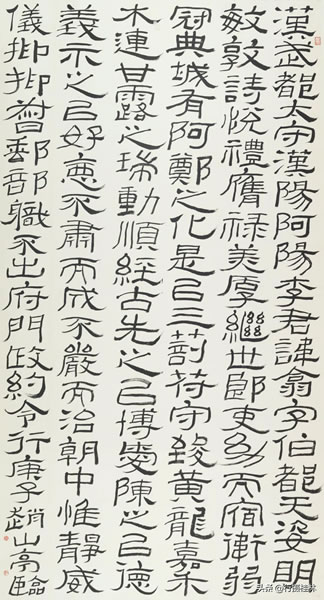 漢武都太守漢陽阿陽李君諱翕字伯都天姿明
敏敦詩悅禮膺祿美厚繼世郎吏幼而宿衛弱
冠典城有阿鄭之化是㠯三剖符守致黃龍嘉禾
木連甘露之瑞動順經古先之㠯博愛陳之㠯德
義示之㠯好惡不肅而成不嚴而治朝中惟靜威
儀抑抑督郵部職不出府門政約令行庚子趙山亭臨
头条 @行摄桂林